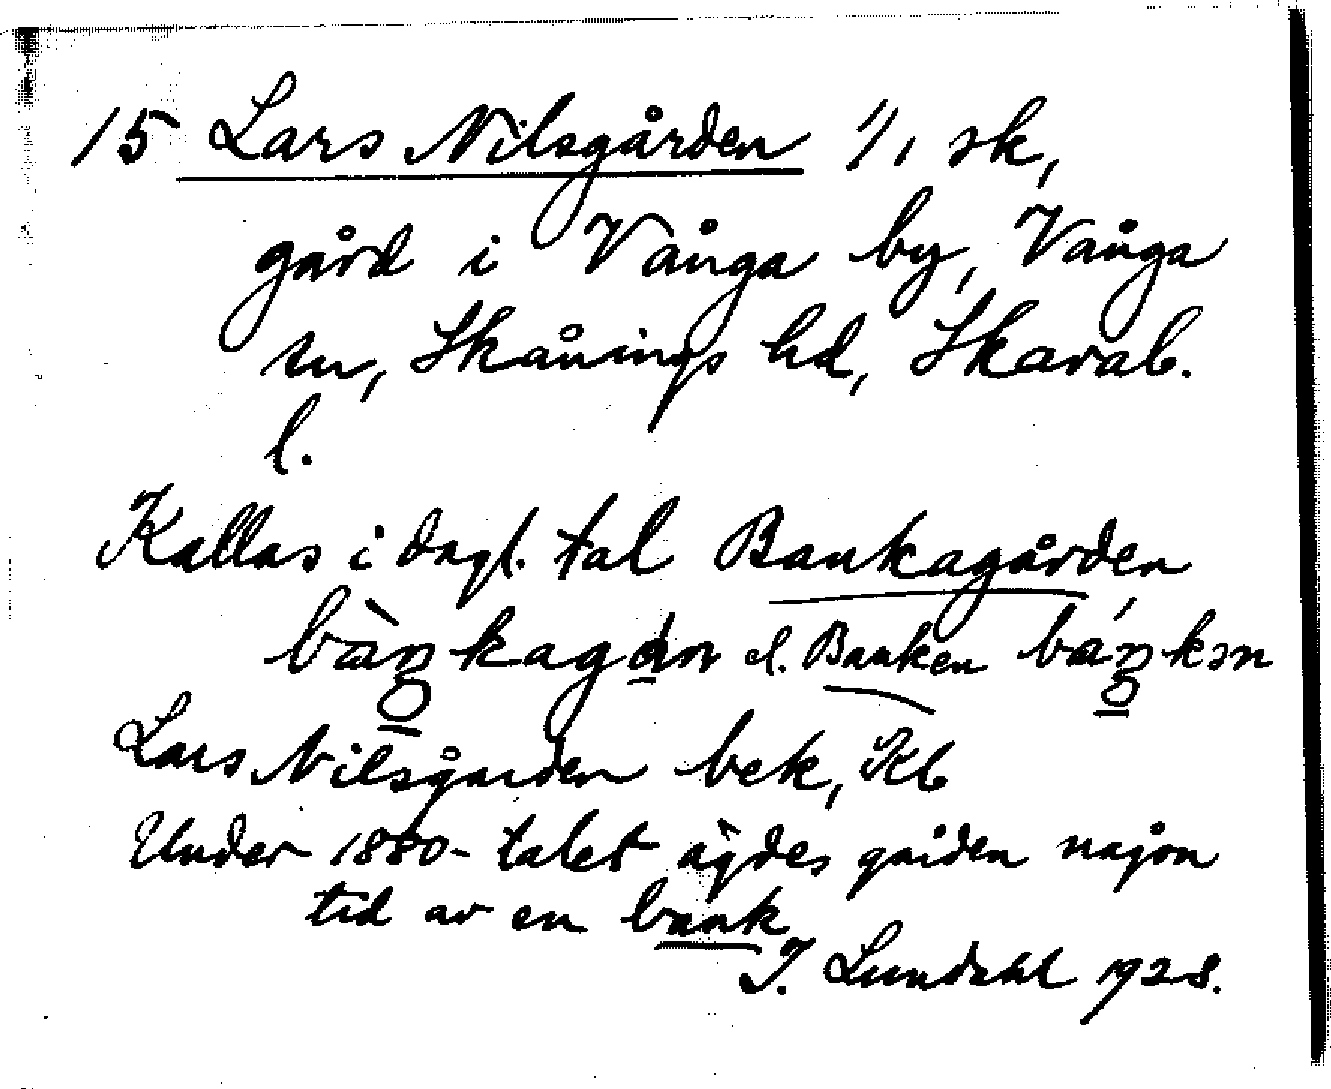 15 Lars Nilsgården 1/1 sk,
gård i Vånga by, Vånga
sn, Skånings hd, Skarab.
l.
Kallas i dagl. tal Bankagården
el. Banken
Lars Nilsgården bek, Kb
Under 1880-talet ägdes gården någon
tid av en bank
I. Lundahl 1928.